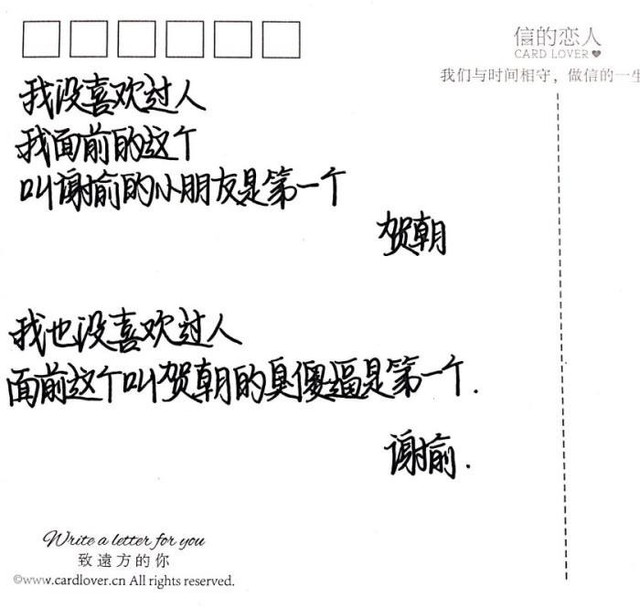 信的恋人
CARD LOVER
我们与时间相守，做信的一生
我没喜欢过人
我面前的这个
叫谢俞的小朋友是第一个
贺朝
我也没喜欢过人
面前这个叫贺朝的臭傻逼是第一个.
谢俞.
Write a letter for you
致遠方的你
©www.cardlover.cn All rights reserved.